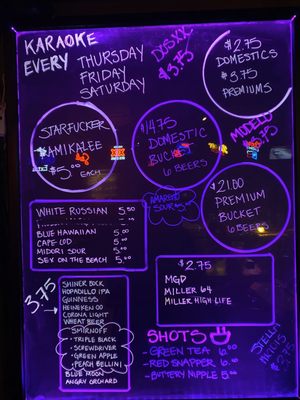 KARAOKE
EVERY THURSDAY
FRIDAY
SATURDAY
DOS XX
$3.75
$2.75
DOMESTICS
$3.75
PREMIUMS
STARFUCKER
KAMIKALEE
$5.00
EACH
$14.75
DOMESTIC
BUCKET
6 BEERS
MODELO
AMARETTO
SOUR
$21.00
PREMIUM
BUCKET
6 BEERS
WHITE RUSSIAN 5.50
BLUE HAWAIIAN 5.00
CAPE COD 5.00
MIDORI SOUR 5.00
SEX ON THE BEACH 5.00
$2.75
MGD
MILLER 64
MILLER HIGH LIFE
3.75
SHINER BOCK
HOPADILLO IPA
GUINNESS
HEINEKEN 00
CORONA LIGHT
WHEAT BEER
SMIRNOFF
• TRIPLE BLACK
• SCREWDRIVER
• GREEN APPLE
• PEACH BELLINI
BLUE MOON
ANGRY ORCHARD
SHOTS
- GREEN TEA 6.00
- RED SNAPPER 6.00
- BUTTERY NIPPLE 5.00